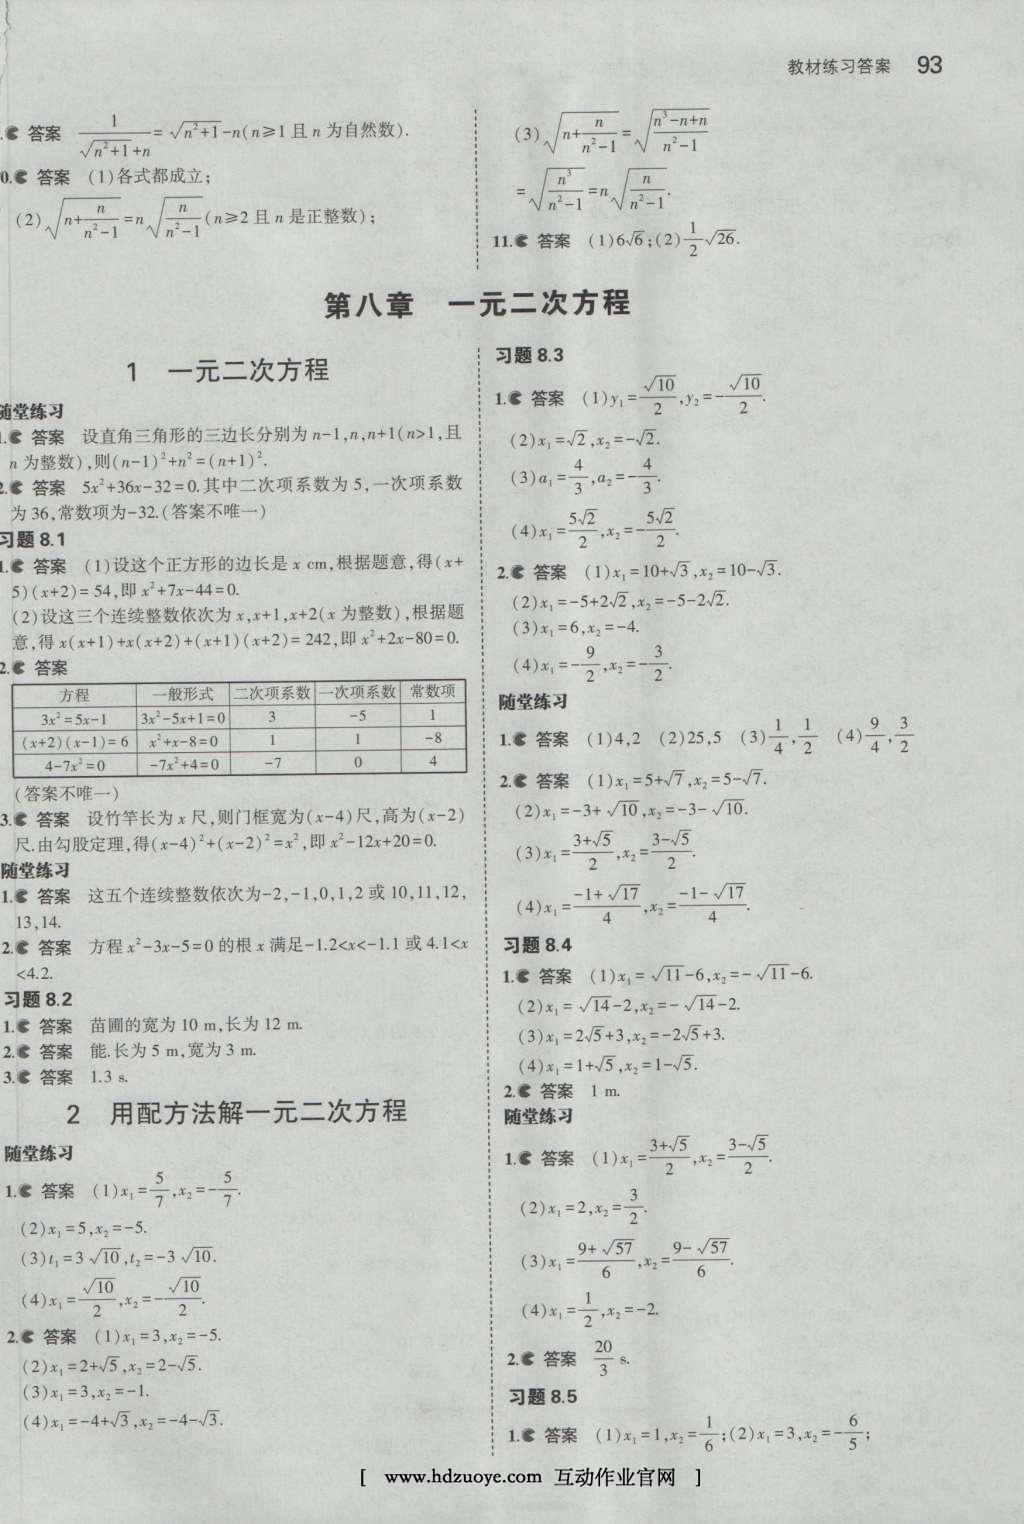 教材练习答案 93
.答案 \frac{1}{\sqrt{n²+1}+n}=\sqrt{n²+1}-n(n≥1 且 n 为自然数).
0.答案 (1)各式都成立;
(2)\sqrt{n+\frac{n}{n²-1}}=n\sqrt{\frac{n}{n²-1}}(n≥2 且 n 是正整数);
(3)\sqrt{n+\frac{n}{n²-1}}=\sqrt{\frac{n³-n+n}{n²-1}}
=\sqrt{\frac{n³}{n²-1}}=n\sqrt{\frac{n}{n²-1}}.
11.答案 (1)6√6;(2)\frac{1}{2}√26.
第八章 一元二次方程
1 一元二次方程
随堂练习
1.答案 设直角三角形的三边长分别为 n-1,n,n+1(n>1,且
n 为整数),则(n-1)²+n²=(n+1)².
2.答案 5x²+36x-32=0.其中二次项系数为 5,一次项系数
为 36,常数项为-32.(答案不唯一)
习题 8.1
1.答案 (1)设这个正方形的边长是 x cm,根据题意,得(x+
5)(x+2)=54,即 x²+7x-44=0.
(2)设这三个连续整数依次为 x,x+1,x+2(x 为整数),根据题
意,得 x(x+1)+x(x+2)+(x+1)(x+2)=242,即 x²+2x-80=0.
2.答案
方程 一般形式 二次项系数 一次项系数 常数项
3x²=5x-1 3x²-5x+1=0 3 -5 1
(x+2)(x-1)=6 x²+x-8=0 1 1 -8
4-7x²=0 -7x²+4=0 -7 0 4
(答案不唯一)
3.答案 设竹竿长为 x 尺,则门框宽为(x-4)尺,高为(x-2)
尺.由勾股定理,得(x-4)²+(x-2)²=x²,即 x²-12x+20=0.
随堂练习
1.答案 这五个连续整数依次为-2,-1,0,1,2 或 10,11,12,
13,14.
2.答案 方程 x²-3x-5=0 的根 x 满足-1.2<x<-1.1 或 4.1<x
<4.2.
习题 8.2
1.答案 苗圃的宽为 10 m,长为 12 m.
2.答案 能.长为 5 m,宽为 3 m.
3.答案 1.3 s.
2 用配方法解一元二次方程
随堂练习
1.答案 (1)x₁=\frac{5}{7},x₂=-\frac{5}{7}.
(2)x₁=5,x₂=-5.
(3)t₁=3√10,t₂=-3√10.
(4)x₁=\frac{√10}{2},x₂=-\frac{√10}{2}.
2.答案 (1)x₁=3,x₂=-5.
(2)x₁=2+√5,x₂=2-√5.
(3)x₁=3,x₂=-1.
(4)x₁=-4+√3,x₂=-4-√3.
习题 8.3
1.答案 (1)y₁=\frac{√10}{2},y₂=-\frac{√10}{2}.
(2)x₁=√2,x₂=-√2.
(3)a₁=\frac{4}{3},a₂=-\frac{4}{3}.
(4)x₁=\frac{5√2}{2},x₂=-\frac{5√2}{2}.
2.答案 (1)x₁=10+√3,x₂=10-√3.
(2)x₁=-5+2√2,x₂=-5-2√2.
(3)x₁=6,x₂=-4.
(4)x₁=-\frac{9}{2},x₂=-\frac{3}{2}.
随堂练习
1.答案 (1)4,2 (2)25,5 (3)\frac{1}{4},\frac{1}{2} (4)\frac{9}{4},\frac{3}{2}
2.答案 (1)x₁=5+√7,x₂=5-√7.
(2)x₁=-3+√10,x₂=-3-√10.
(3)x₁=\frac{3+√5}{2},x₂=\frac{3-√5}{2}.
(4)x₁=\frac{-1+√17}{4},x₂=\frac{-1-√17}{4}.
习题 8.4
1.答案 (1)x₁=√11-6,x₂=-√11-6.
(2)x₁=√14-2,x₂=-√14-2.
(3)x₁=2√5+3,x₂=-2√5+3.
(4)x₁=1+√5,x₂=1-√5.
2.答案 1 m.
随堂练习
1.答案 (1)x₁=\frac{3+√5}{2},x₂=\frac{3-√5}{2}.
(2)x₁=2,x₂=\frac{3}{2}.
(3)x₁=\frac{9+√57}{6},x₂=\frac{9-√57}{6}.
(4)x₁=\frac{1}{2},x₂=-2.
2.答案 \frac{20}{3} s.
习题 8.5
1.答案 (1)x₁=1,x₂=\frac{1}{6};(2)x₁=3,x₂=-\frac{6}{5};
[ www.hdzuoye.com 互动作业官网 ]